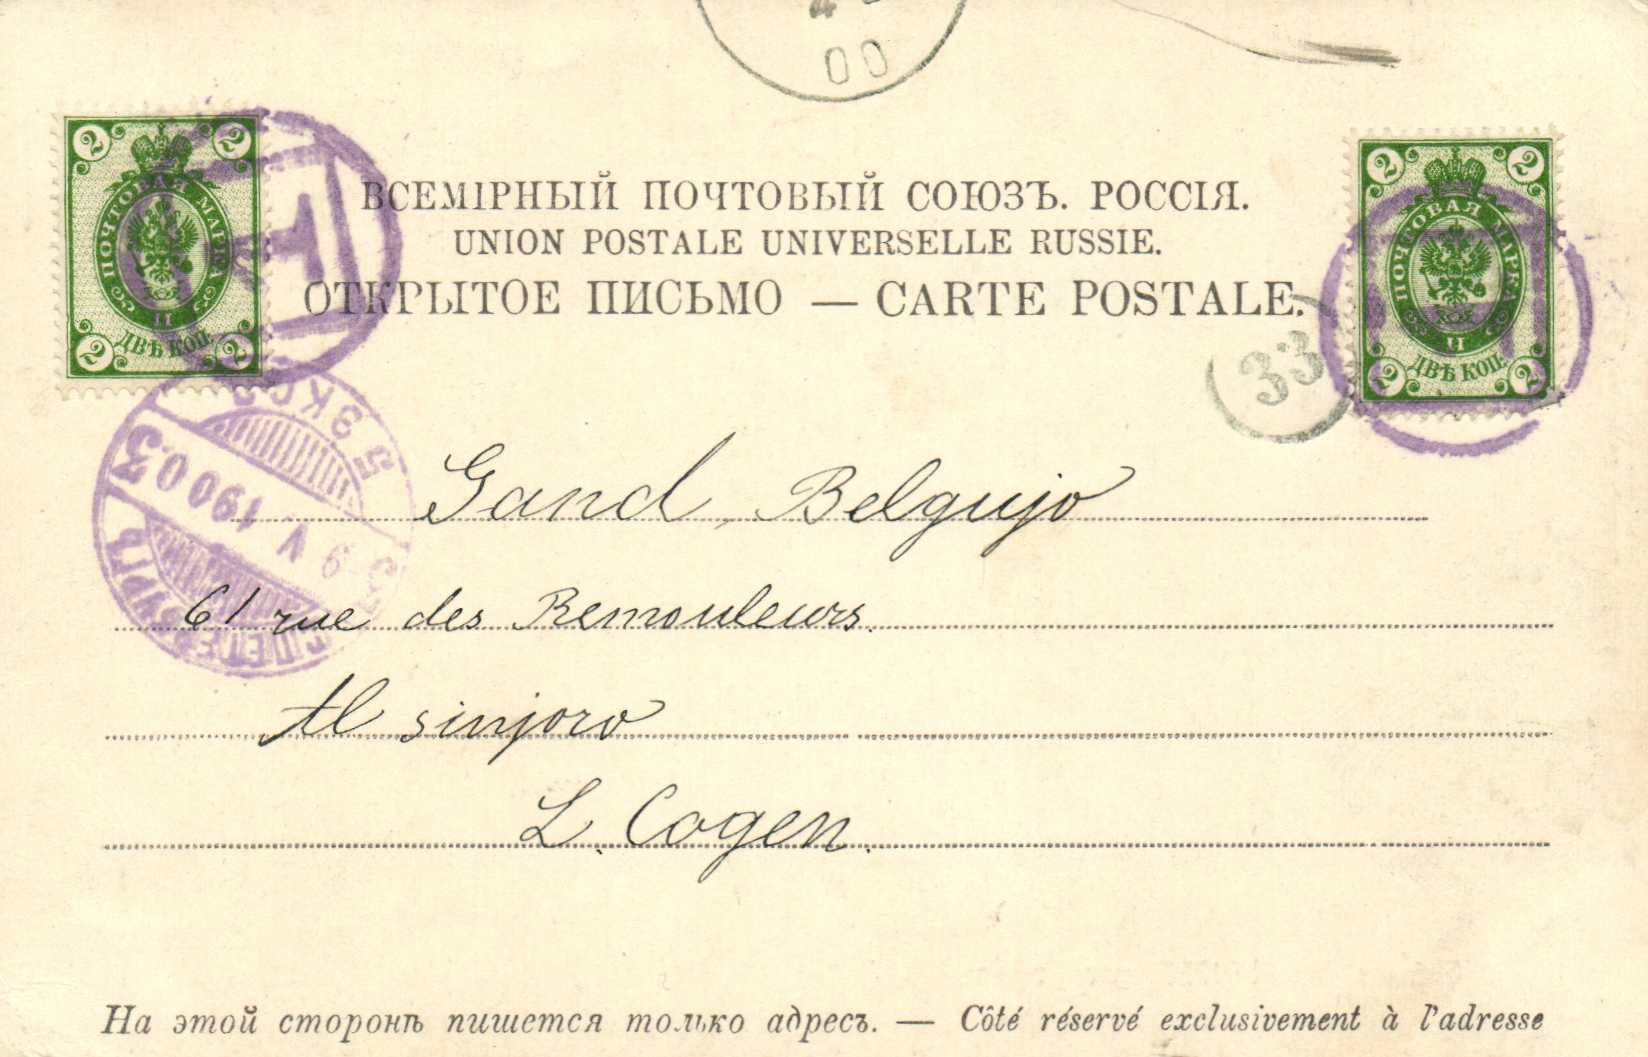 00
2 2
ПОЧТОВАЯ МАРКА
II
ДВѢ КОП.
2 2
2 2
ПОЧТОВАЯ МАРКА
II
ДВѢ КОП.
2 2
ВСЕМІРНЫЙ ПОЧТОВЫЙ СОЮЗЪ. РОССІЯ.
UNION POSTALE UNIVERSELLE RUSSIE.
ОТКРЫТОЕ ПИСЬМО — CARTE POSTALE.
33
9 V 1900.3
Gand, Belgujo
61 rue des Remouleurs.
Al sinjoro
L. Cogen.
На этой сторонѣ пишется только адресъ. — Côté réservé exclusivement à l'adresse